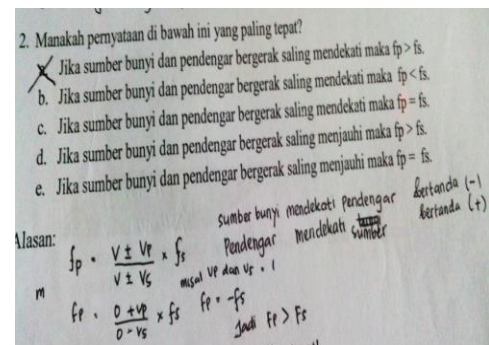 2. Manakah pernyataan di bawah ini yang paling tepat?
Jika sumber bunyi dan pendengar bergerak saling mendekati maka fp > fs.
b. Jika sumber bunyi dan pendengar bergerak saling mendekati maka fp < fs.
c. Jika sumber bunyi dan pendengar bergerak saling mendekati maka fp = fs.
d. Jika sumber bunyi dan pendengar bergerak saling menjauhi maka fp > fs.
e. Jika sumber bunyi dan pendengar bergerak saling menjauhi maka fp = fs.
Alasan:
sumber bunyi mendekati pendengar bertanda (-)
Pendengar mendekati sumber bertanda (+)
fp = V ± Vp / V ± Vs × fs
misal vp dan vs = 1
m
fp = 0 + vp / 0 - vs × fs fp = -fs
Jadi Fp > Fs